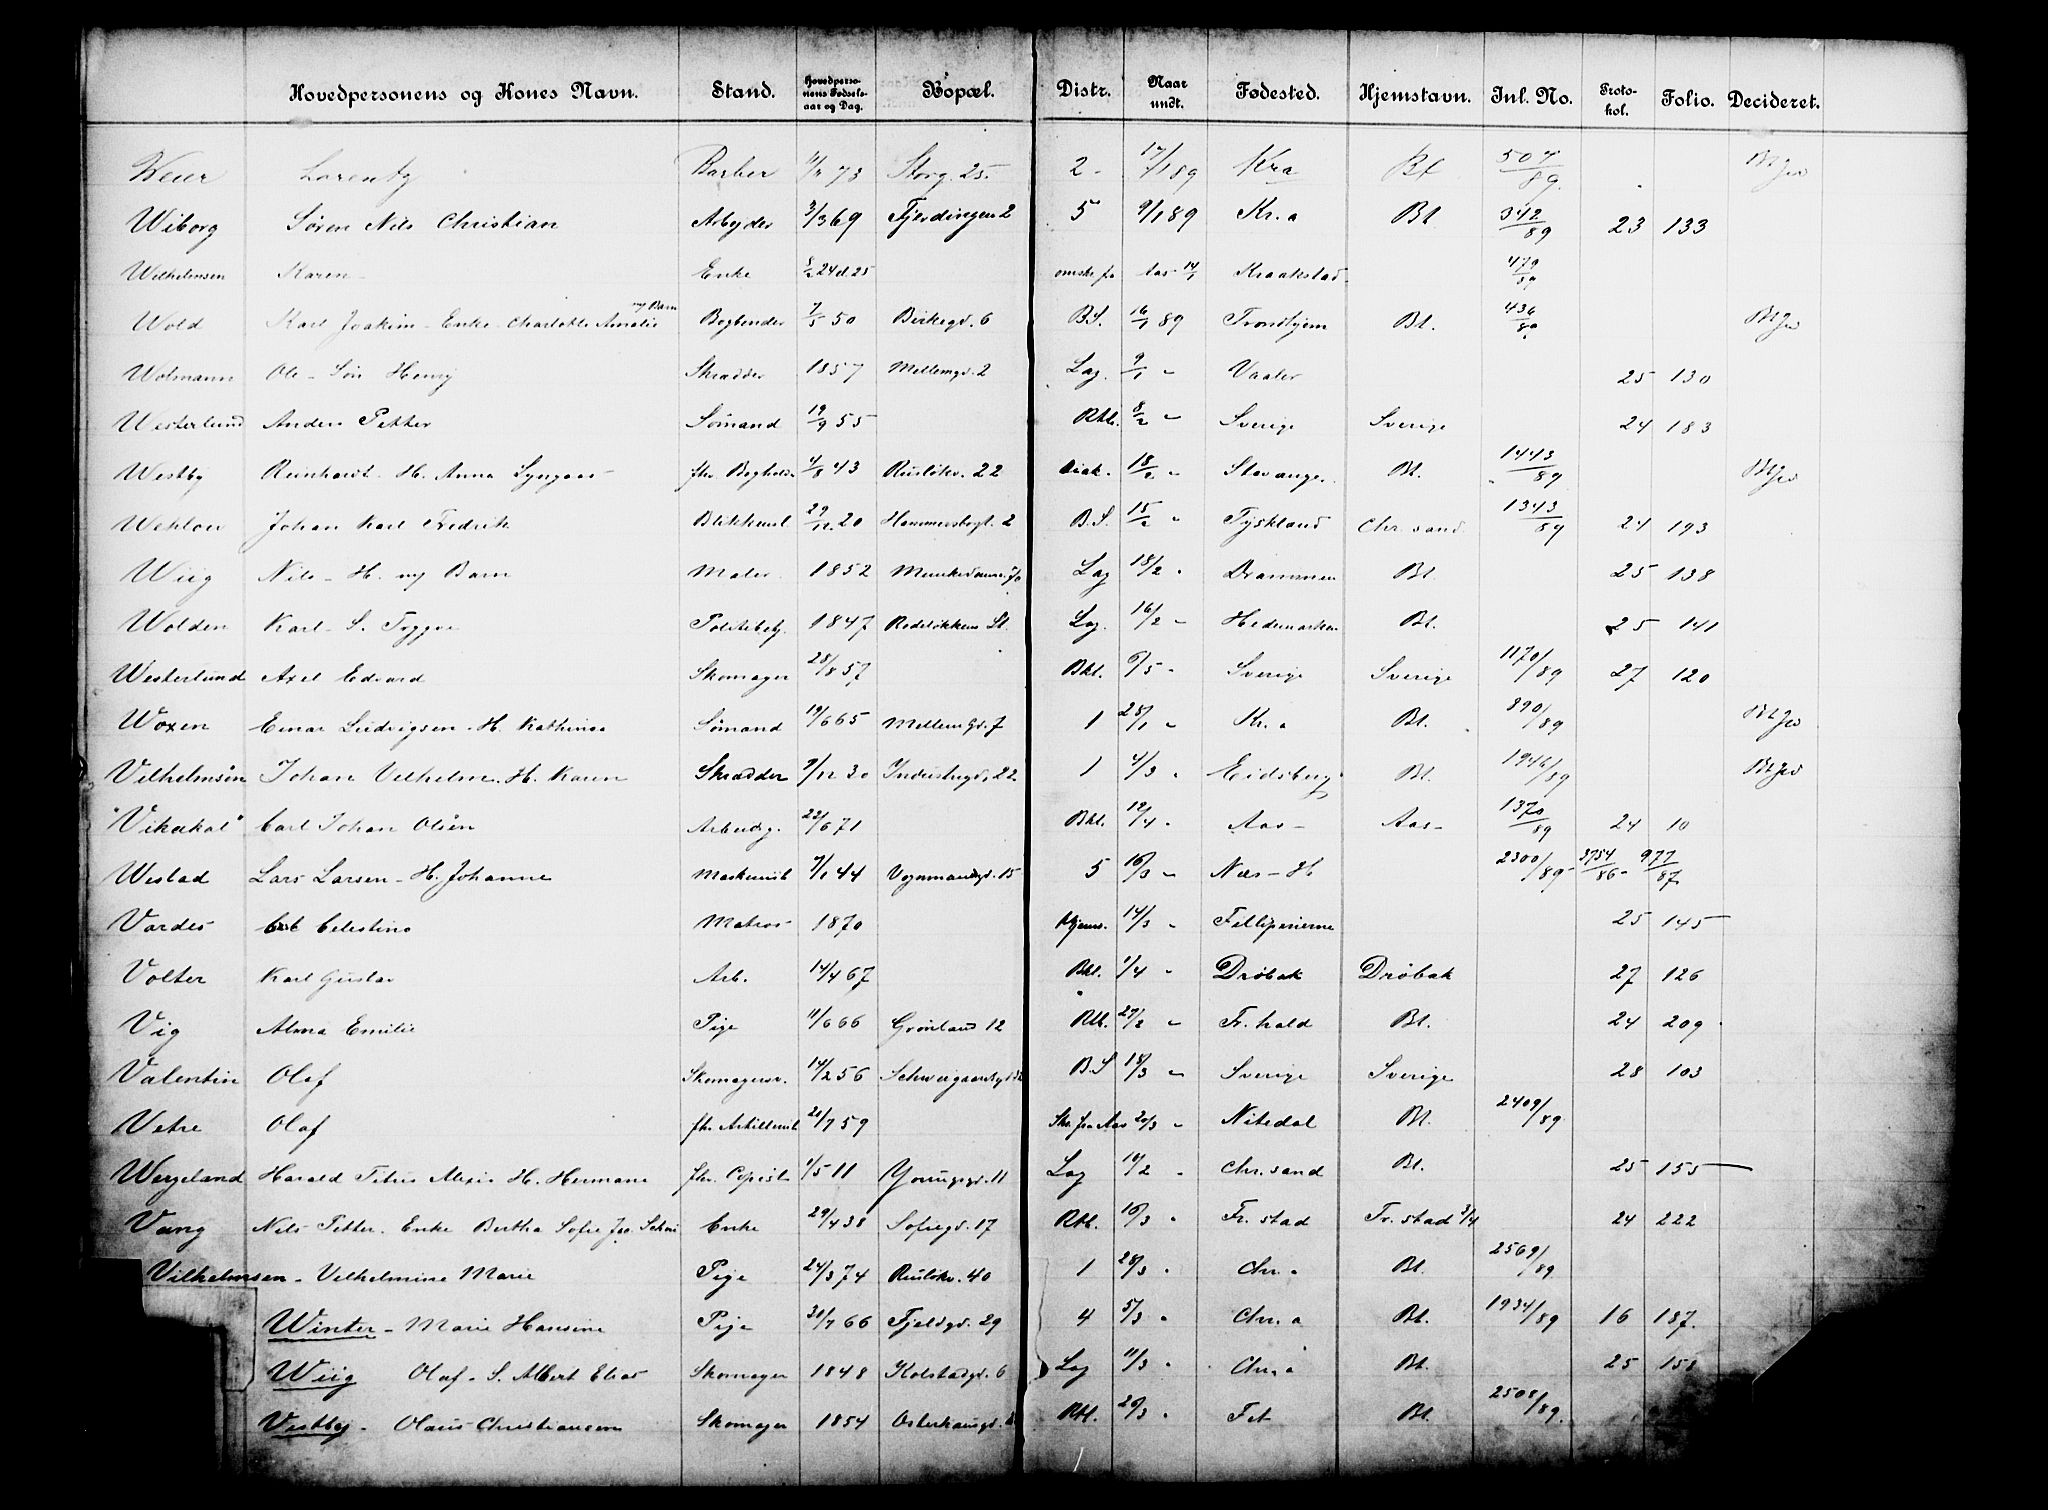 Hovedpersonens og Kones Navn. Stand. Hovedperso-nens Fødsels-aar og Dag. Bopæl. Distr. Naar undt. Fødested. Hjemstavn. Jnl. No. Proto-kol. Folio. Decideret.
Weier Lorentz Barber 73 Storg. 25. 2 - 17/1 89 Kra Bt 504/89.
Wiborg Søren Nils Christian Arbyder 3/3 69 Fjerdingen 2 5 9/1 89 Kr.a Bt. 342/89 23 133
Wilhelmsen Karen Enke 24 d. 25 Aas 14/1 Kraakstad 479/89
Wold Karl Joakim - Enke Charlotte Amalie m/ Barn Bogbinder 7/5 50 Birkegd. 6 B.S. 16/1 89 Trondhjem Bt. 436/89
Wolmann Ole - Søn Henry Skrædder 1857 Mellemgd. 2 Lag. 9/1 " Vaaler 25 130
Westerlund Anders Petter Sømand 19/9 55 Rhl. 8/2 " Sverige Sverige 24 183
Westby Reinhardt - H. Anna fhv. Bogholder 4/8 43 Rusløkv. 22 Diak. 18/2 " Stavanger Bt. 1443/89
Wehlow Johan Karl Fredrik Blikkensl. 29/12 20 Hammersbogt. 2 B.S. 15/2 " Tyskland Chr.sand 1343/89 24 193
Wiig Nils - H. m/ Barn Maler 1852 Lag 18/2 " Drammen Bt. 25 138
Wolden Karl - S. Trygve Politibetj. 1847 Rodeløkken St. Lag. 16/2 " Hedemarken Bt. 25 141
Westerlund Axel Edvard Skomager 28/8 57 Bkl. 6/5 " Sverige Sverige 1170/89 27 120
Woxen Einar Ludvigsen - H. Kathinca Sømand 19/6 65 Mellemgd. 7 1 28/1 " Kr.a Bt. 890/89
Vilhelmsen Johan Vilhelm - H. Karen Skrædder 9/12 30 Industrigd. 22 1 4/3 " Eidsberg Bt. 1946/89
"Vikakal" Carl Johan Olsen Arbeidsg. 22/6 71 Bkl. 19/4 " Aas - Aas - 1370/89 24 10
Westad Lars Larsen - H. Johanne Maskinist 7/1 44 Vognmandsgd. 15 5 16/3 " Næs - H 2300/89 - 3754/86 - 977/87
Vardes Celestino Matros 1870 Hjems. 14/3 " Fillipinerne 25 145
Volter Karl Gustav Arb. 14/4 67 Bkl. 1/4 " Drøbak Drøbak 27 126
Vig Alma Emilie Pige 11/6 66 Grønland 12 Rtl. 27/2 " Fr.hald Bt. 24 209
Valentin Olaf Skomagersv. 14/2 56 B.S 18/3 " Sverige Sverige 28 103
Vetre Olaf fhv. Artillerist 21/7 59 Skr. fra Aas 20/3 " Nitedal Bt. 2409/89
Wergeland Harald Titus Alexis H. Hermane fhv. Copist 1/5 11 Youngsgd. 11 Lag 19/2 " Chr.sand Bt. 25 155
Vang Nils Petter. Enke Bertha Sofie Enke 29/4 38 Sofiegd. 17 Rtl. 16/3 " Fr.stad Fr.stad 3/4 24 222
Vilhelmsen - Vilhelmine Marie Pige 24/3 74 Rusløkv. 40 1 28/3 " Chr.a Bt. 2569/89
Winter - Marie Hansine Pige 31/7 66 Fjeldgd. 29 4 5/3 " Chr.a Bt. 1934/89 16 187.
Wiig Olaf - S. Albert Elias Skomager 1848 Kolstadgd. 6 Lag 11/3 " Chr.a Bt. 25
Vestby - Olaus Christiansen Skomager 1854 Rtl. 26/3 " Fet Bt. 2508/89.